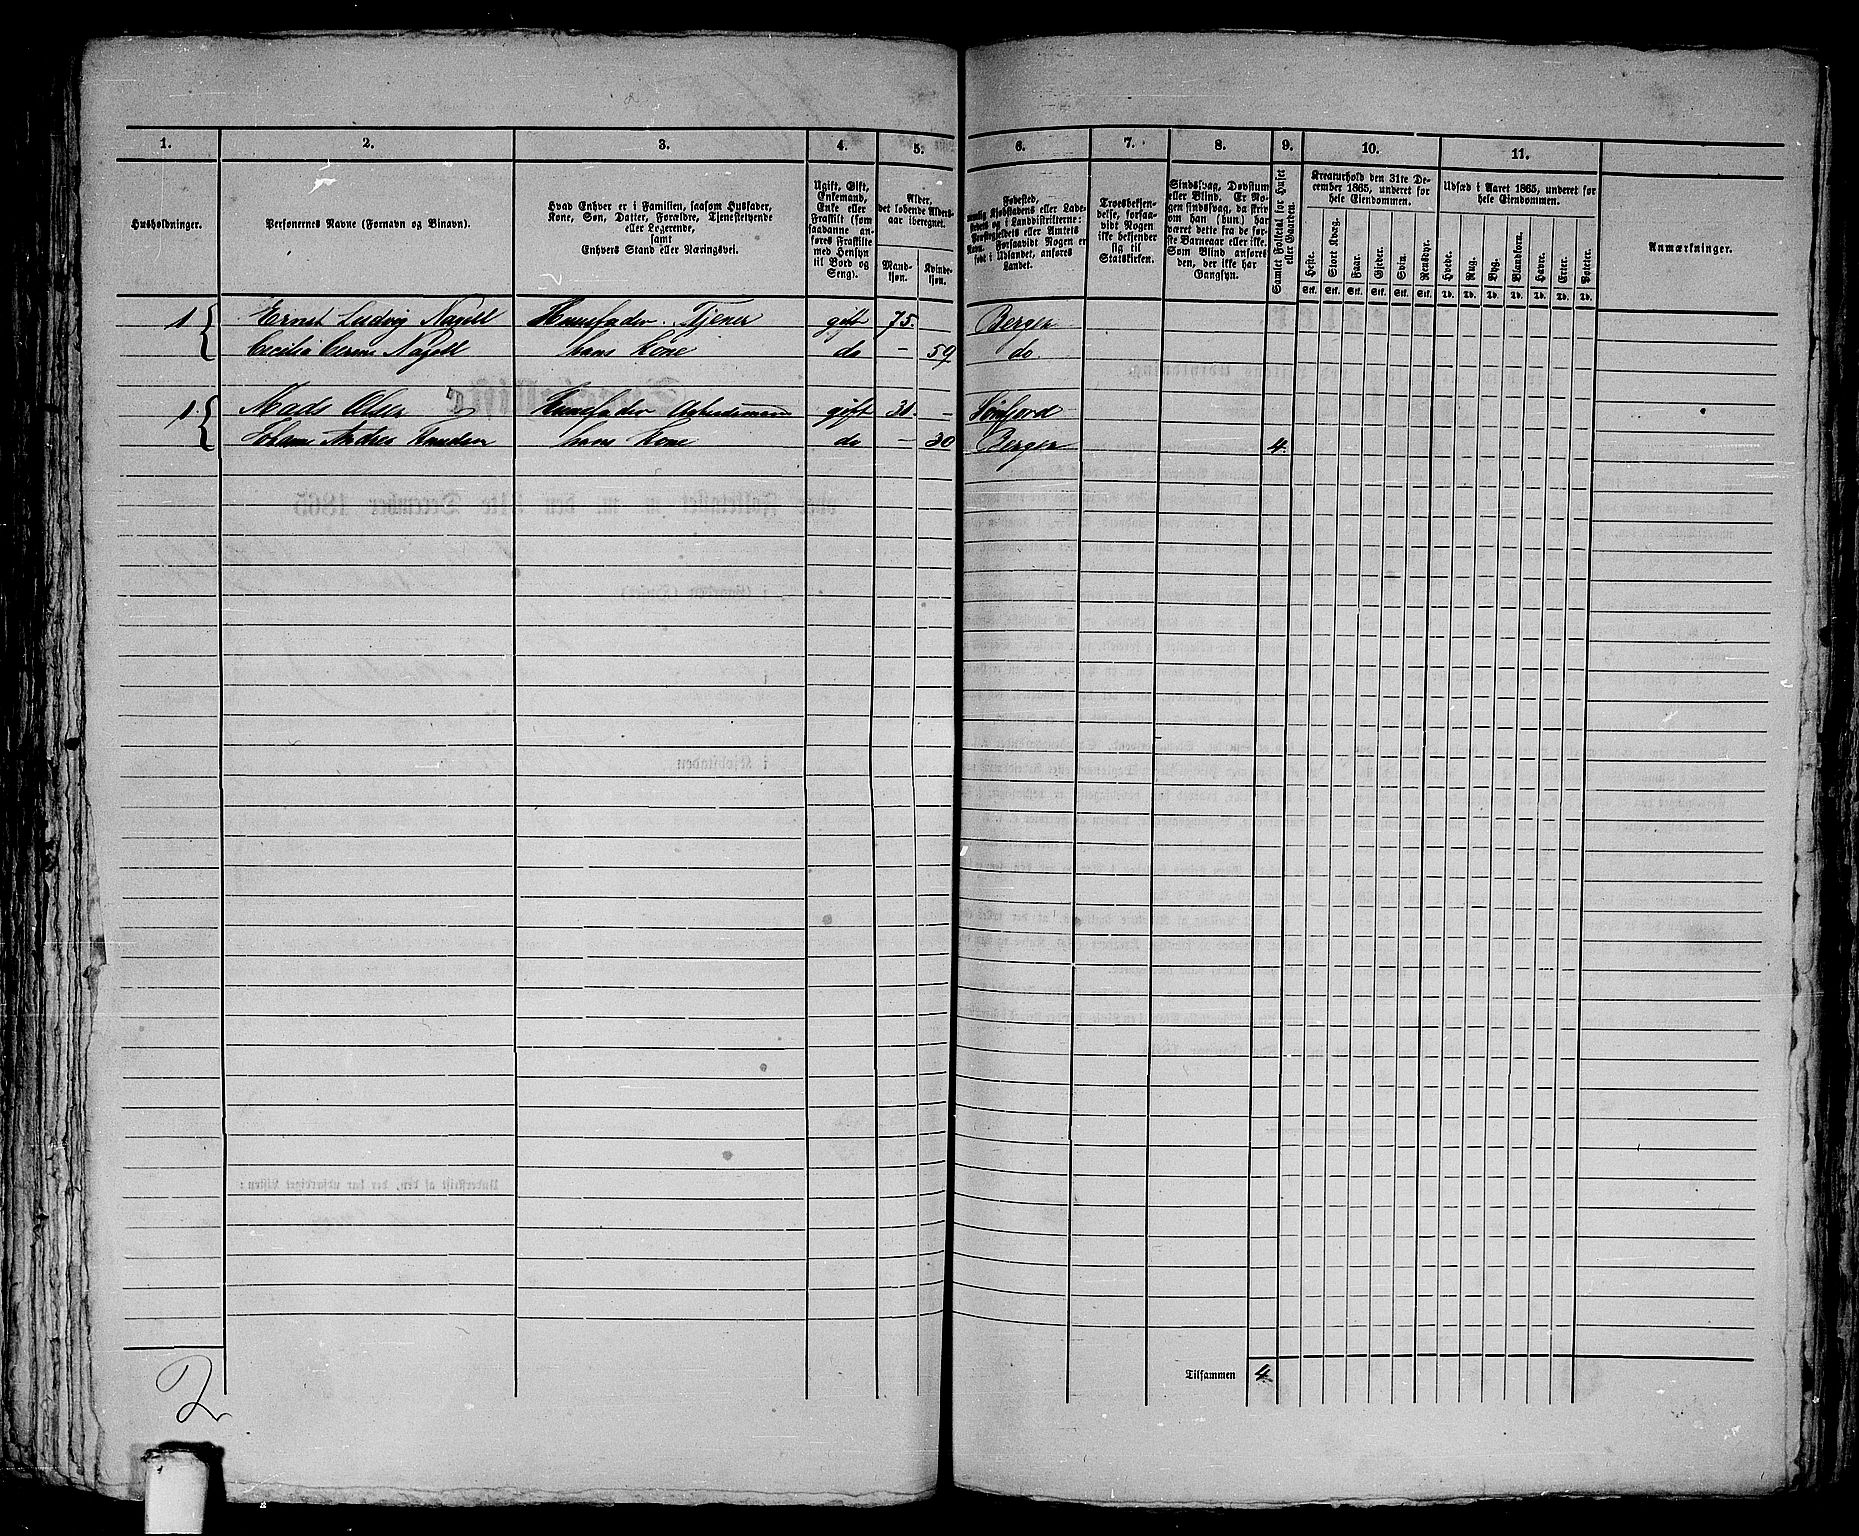 1. 2. 3. 4. 5. 6. 7. 8. 9. 10. 11.
Husholdninger.
Personernes Navne (Fornavn og Binavn).
Hvad Enhver er i Familien, saasom Husfader,
Kone, Søn, Datter, Forældre, Tjenestetyende
eller Logerende,
samt
Enhvers Stand eller Næringsvei.
Ugift, Gift,
Enkemand,
Enke eller
Fraskilt (som
saadanne an-
føres Fraskilte
med Hensyn
til Bord og
Seng).
Alder,
det løbende Alders-
aar iberegnet.
Mand-
kjøn.
Kvinde-
kjøn.
Fødested,
nemlig Kjøbstadens eller Lade-
stedets og i Landdistrikterne:
Præstegjeldets eller Amtets
Navn. Forsaavidt Nogen er
født i Udlandet, anføres
Landet.
Troesbekjen-
delse, forsaa-
vidt Nogen
ikke bekjender
sig til
Statskirken.
Sindssvag, Døvstum
eller Blind. Er No-
gen sindssvag, da skriv
om han (hun) har
været dette fra de før-
ste Barneaar eller ikke.
Som Blind anføres
den, der ikke har
Gangsyn.
Samlet Folketal for Huset
eller Gaarden.
Kreaturhold den 31te De-
cember 1865, underet for
hele Eiendommen.
Heste. Stort Kvæg. Faar. Gjeder. Svin. Rensdyr.
Stk. Stk. Stk. Stk. Stk. Stk.
Udsæd i Aaret 1865, underet for
hele Eiendommen.
Hvede. Rug. Byg. Blandkorn. Havre. Erter. Poteter.
Td. Td. Td. Td. Td. Td. Td.
Anmærkninger.
1 Ernst Ludvig Nagell Huusfader. Tjener gift 75. Bergen
Cecilia Nagell hans Kone do – 59 do.
1 Mads Olsen Huusfader Arbeidsmand gift 30. – Sønfjord
Johanne Andrea Knudsen hans Kone do – 30 Bergen 4.
Tilsammen 4
2